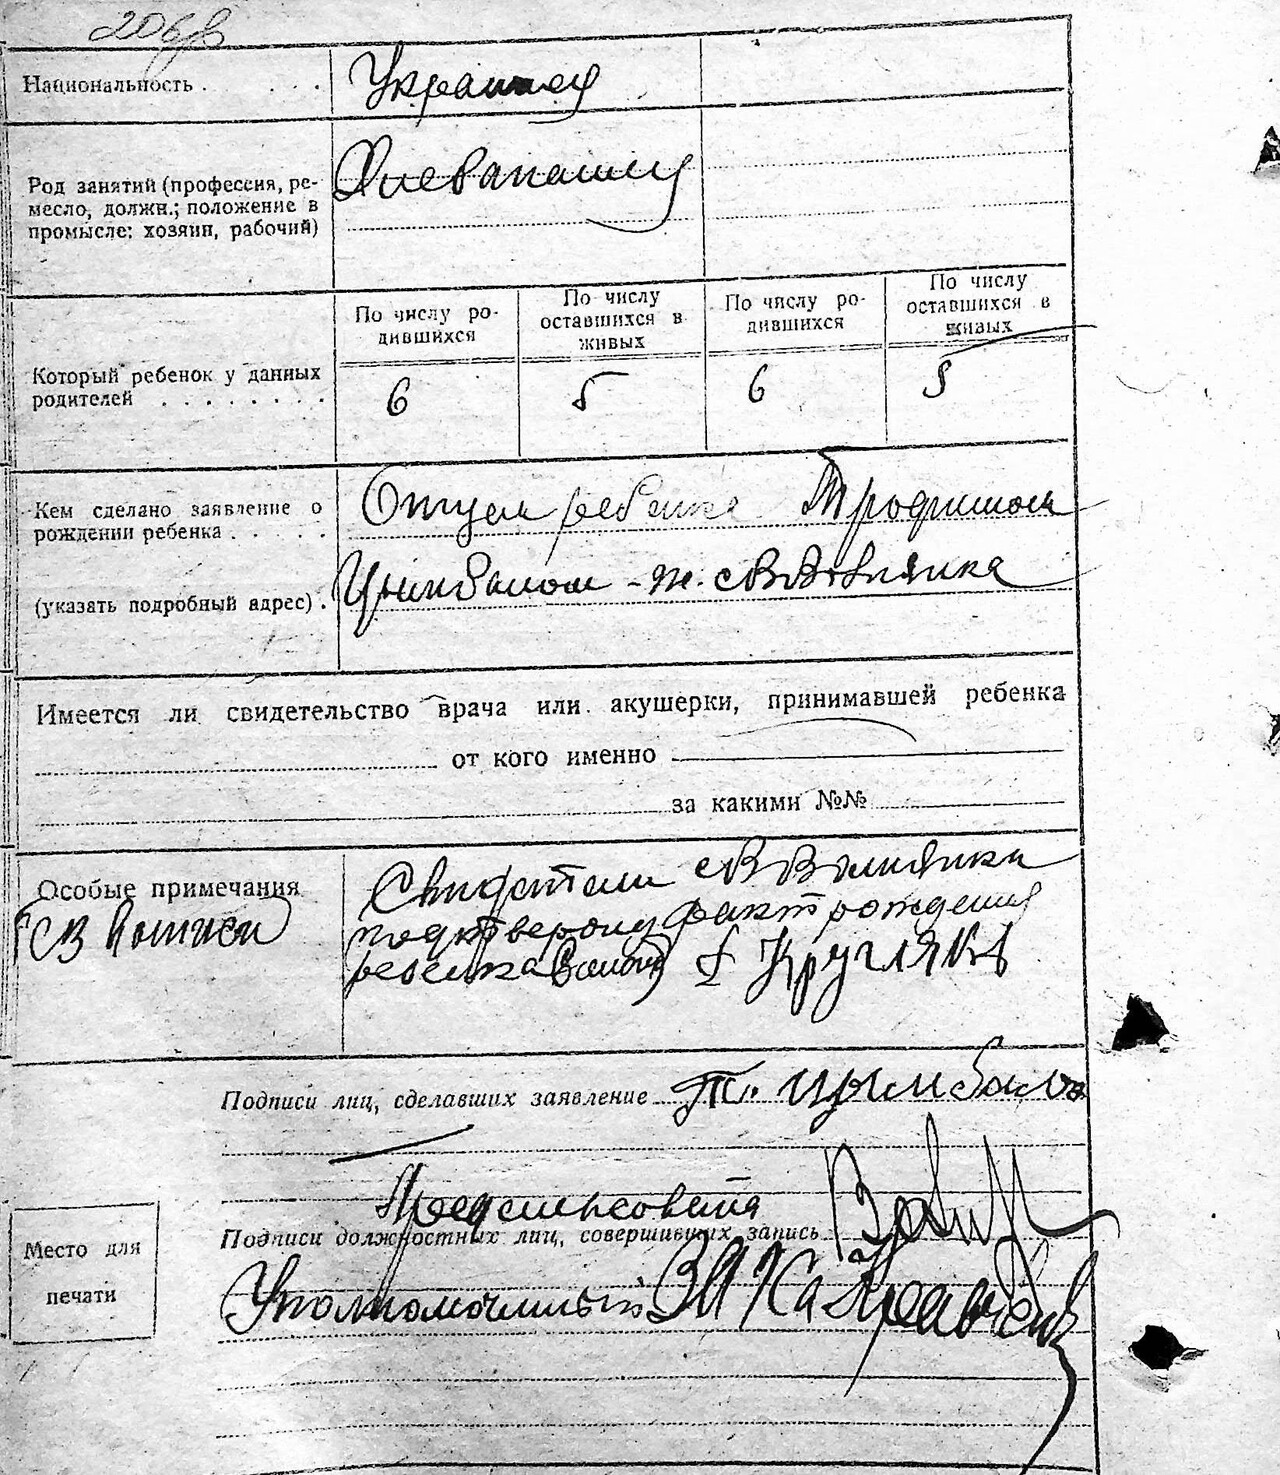 Национальность . . . .
Украинец
Род занятий (профессия, ре-
месло, должн.; положение в
промысле: хозяин, рабочий)
Хлебопашец
По числу ро-
дившихся
По числу
оставшихся в
живых
По числу ро-
дившихся
По числу
оставшихся в
живых
Который ребенок у данных
родителей . . . . . . . .
6 5 6 5
Кем сделано заявление о
рождении ребенка . . . . .
(указать подробный адрес) .
Отцом ребенка Трофимом
Цымбалом - ж.
Имеется ли свидетельство врача или акушерки, принимавшей ребенка
от кого именно
за какими №№
Особые примечания
Свидетели
подтвердил факт рождения
ребенка Кругляков
Подписи лиц, сделавших заявление Т. Цымбало
Предсельсовета
Подписи должностных лиц, совершивших запись
Уполномоченный ЗАГСа
Место для
печати